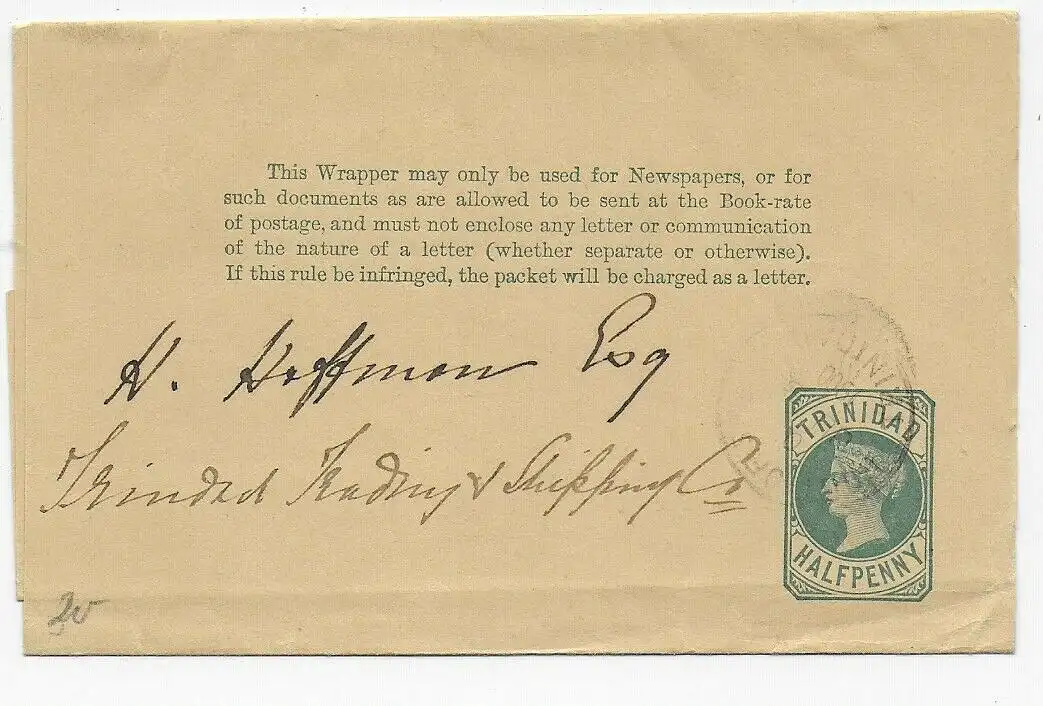 This Wrapper may only be used for Newspapers, or for
such documents as are allowed to be sent at the Book-rate
of postage, and must not enclose any letter or communication
of the nature of a letter (whether separate or otherwise).
If this rule be infringed, the packet will be charged as a letter.
H. Hoffman Esq
Trinidad Trading & Shipping Co
TRINIDAD
HALFPENNY